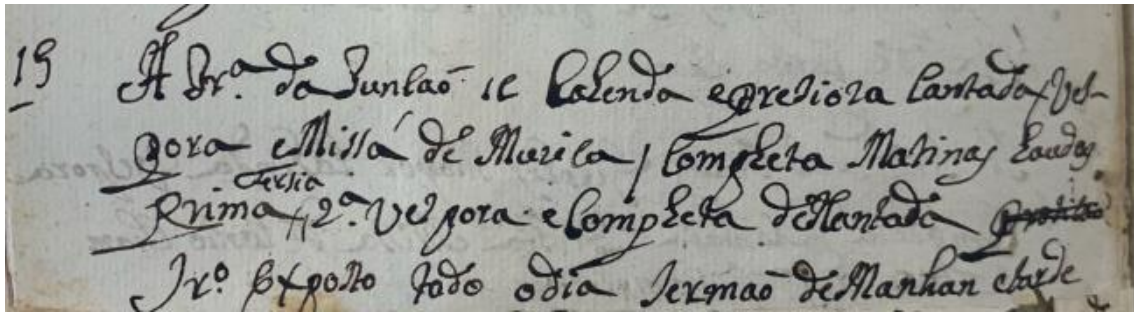 19 A Sr.ª da Junsaõ Kalenda e pretiora Cantada, Ves-
pora e Missa de Muzica / Completa Matinas Laudes
Prima Tersia 2.ª Vespora e Completa de Cantada
Sr.º Exposto todo odia Sermaõ de Manhan etarde